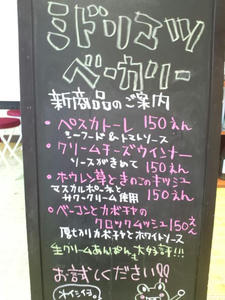 ミドリマツ
ベーカリー
新商品のご案内
・ペスカトーレ 150えん
シーフード&トマトソース
・クリームチーズウインナー
ソースがきめて 150えん
・ホウレン草ときのこのキッシュ
マスカルポーネと
サワークリーム使用 150えん
・ベーコンとカボチャの
クロックムッシュ 150えん
厚切りカボチャとホワイトソース
生クリームあんぱんも大好評!!!
お試しください!!
オイシイヨ。